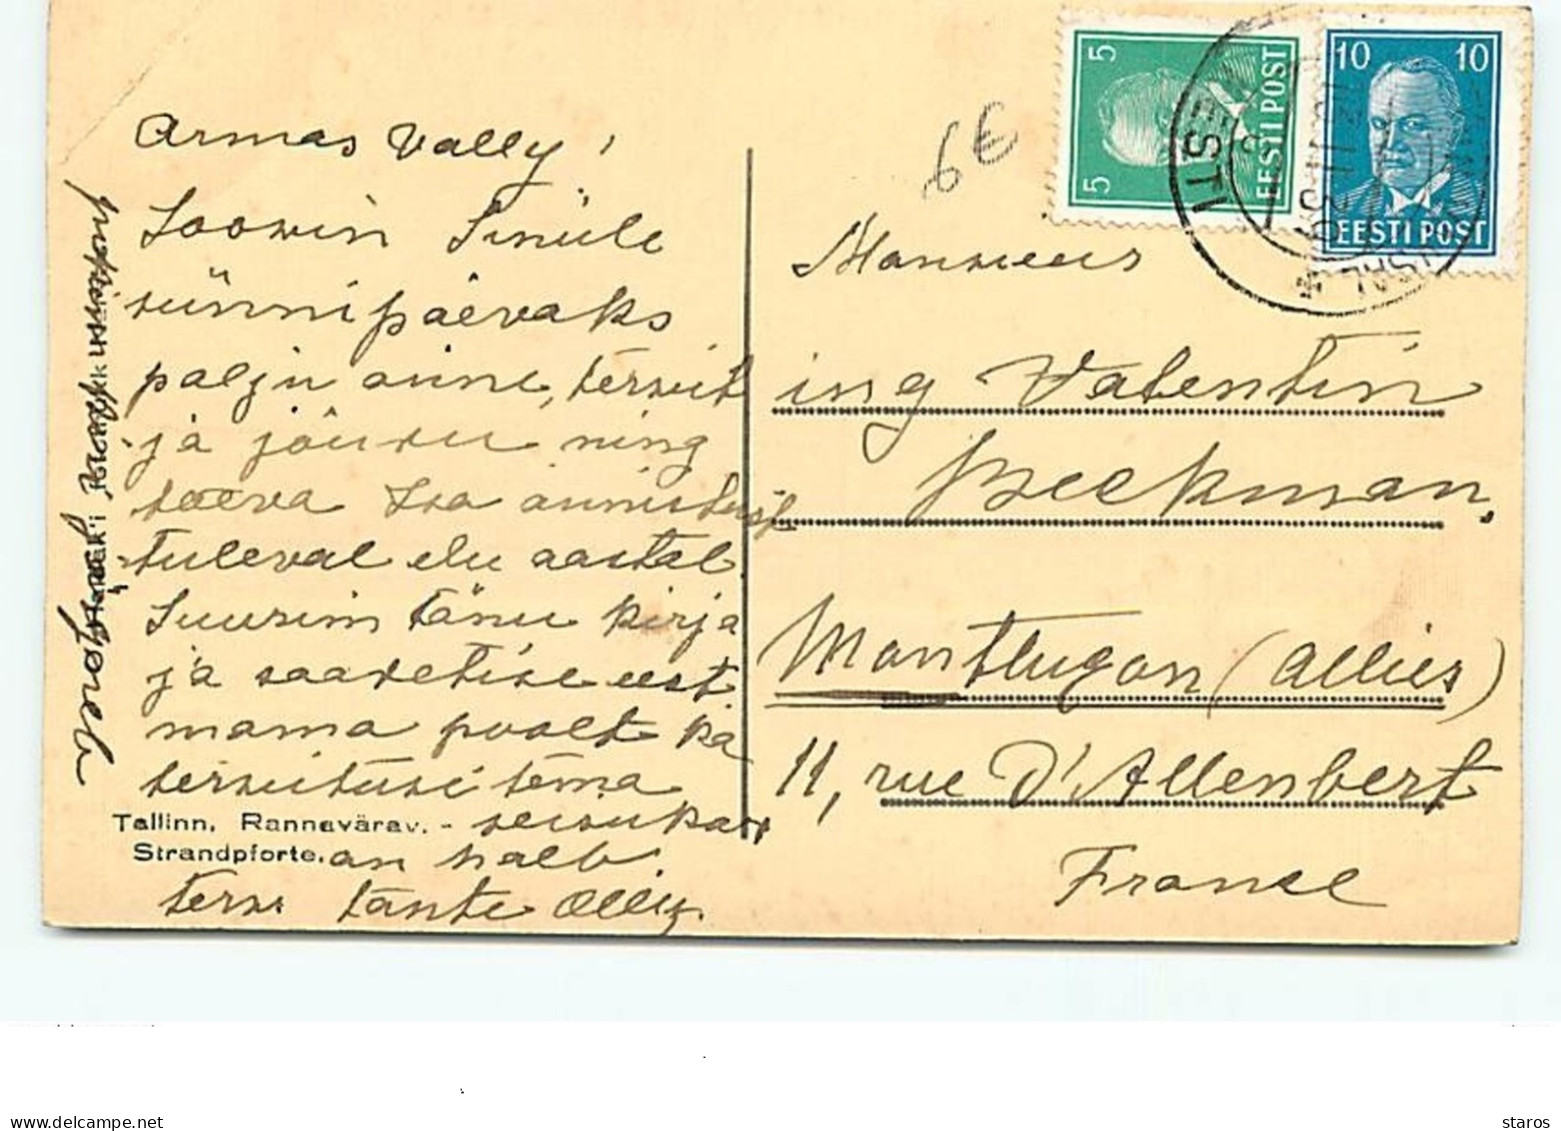 Armas Vally!
Soovin Sinule
sünnipäevaks
palju õnne, tervist
ja jõudu ning
taeva Isa õnnistust
tuleval elu aastal.
Suurim tänu kirja
ja saadetise eest
mama poolt ka
tervitusi tema
seisukord
on halb.
Terv. tante Olly.
Tallinn. Rannavärav. -
Strandpforte.
6€
5 5
EESTI POST
10 10
EESTI POST
EESTI
Monsieur
ing Valentin
Beekman,
Montlugon (Allier)
11, rue D'Allenbert
France
delcampe.net
staros